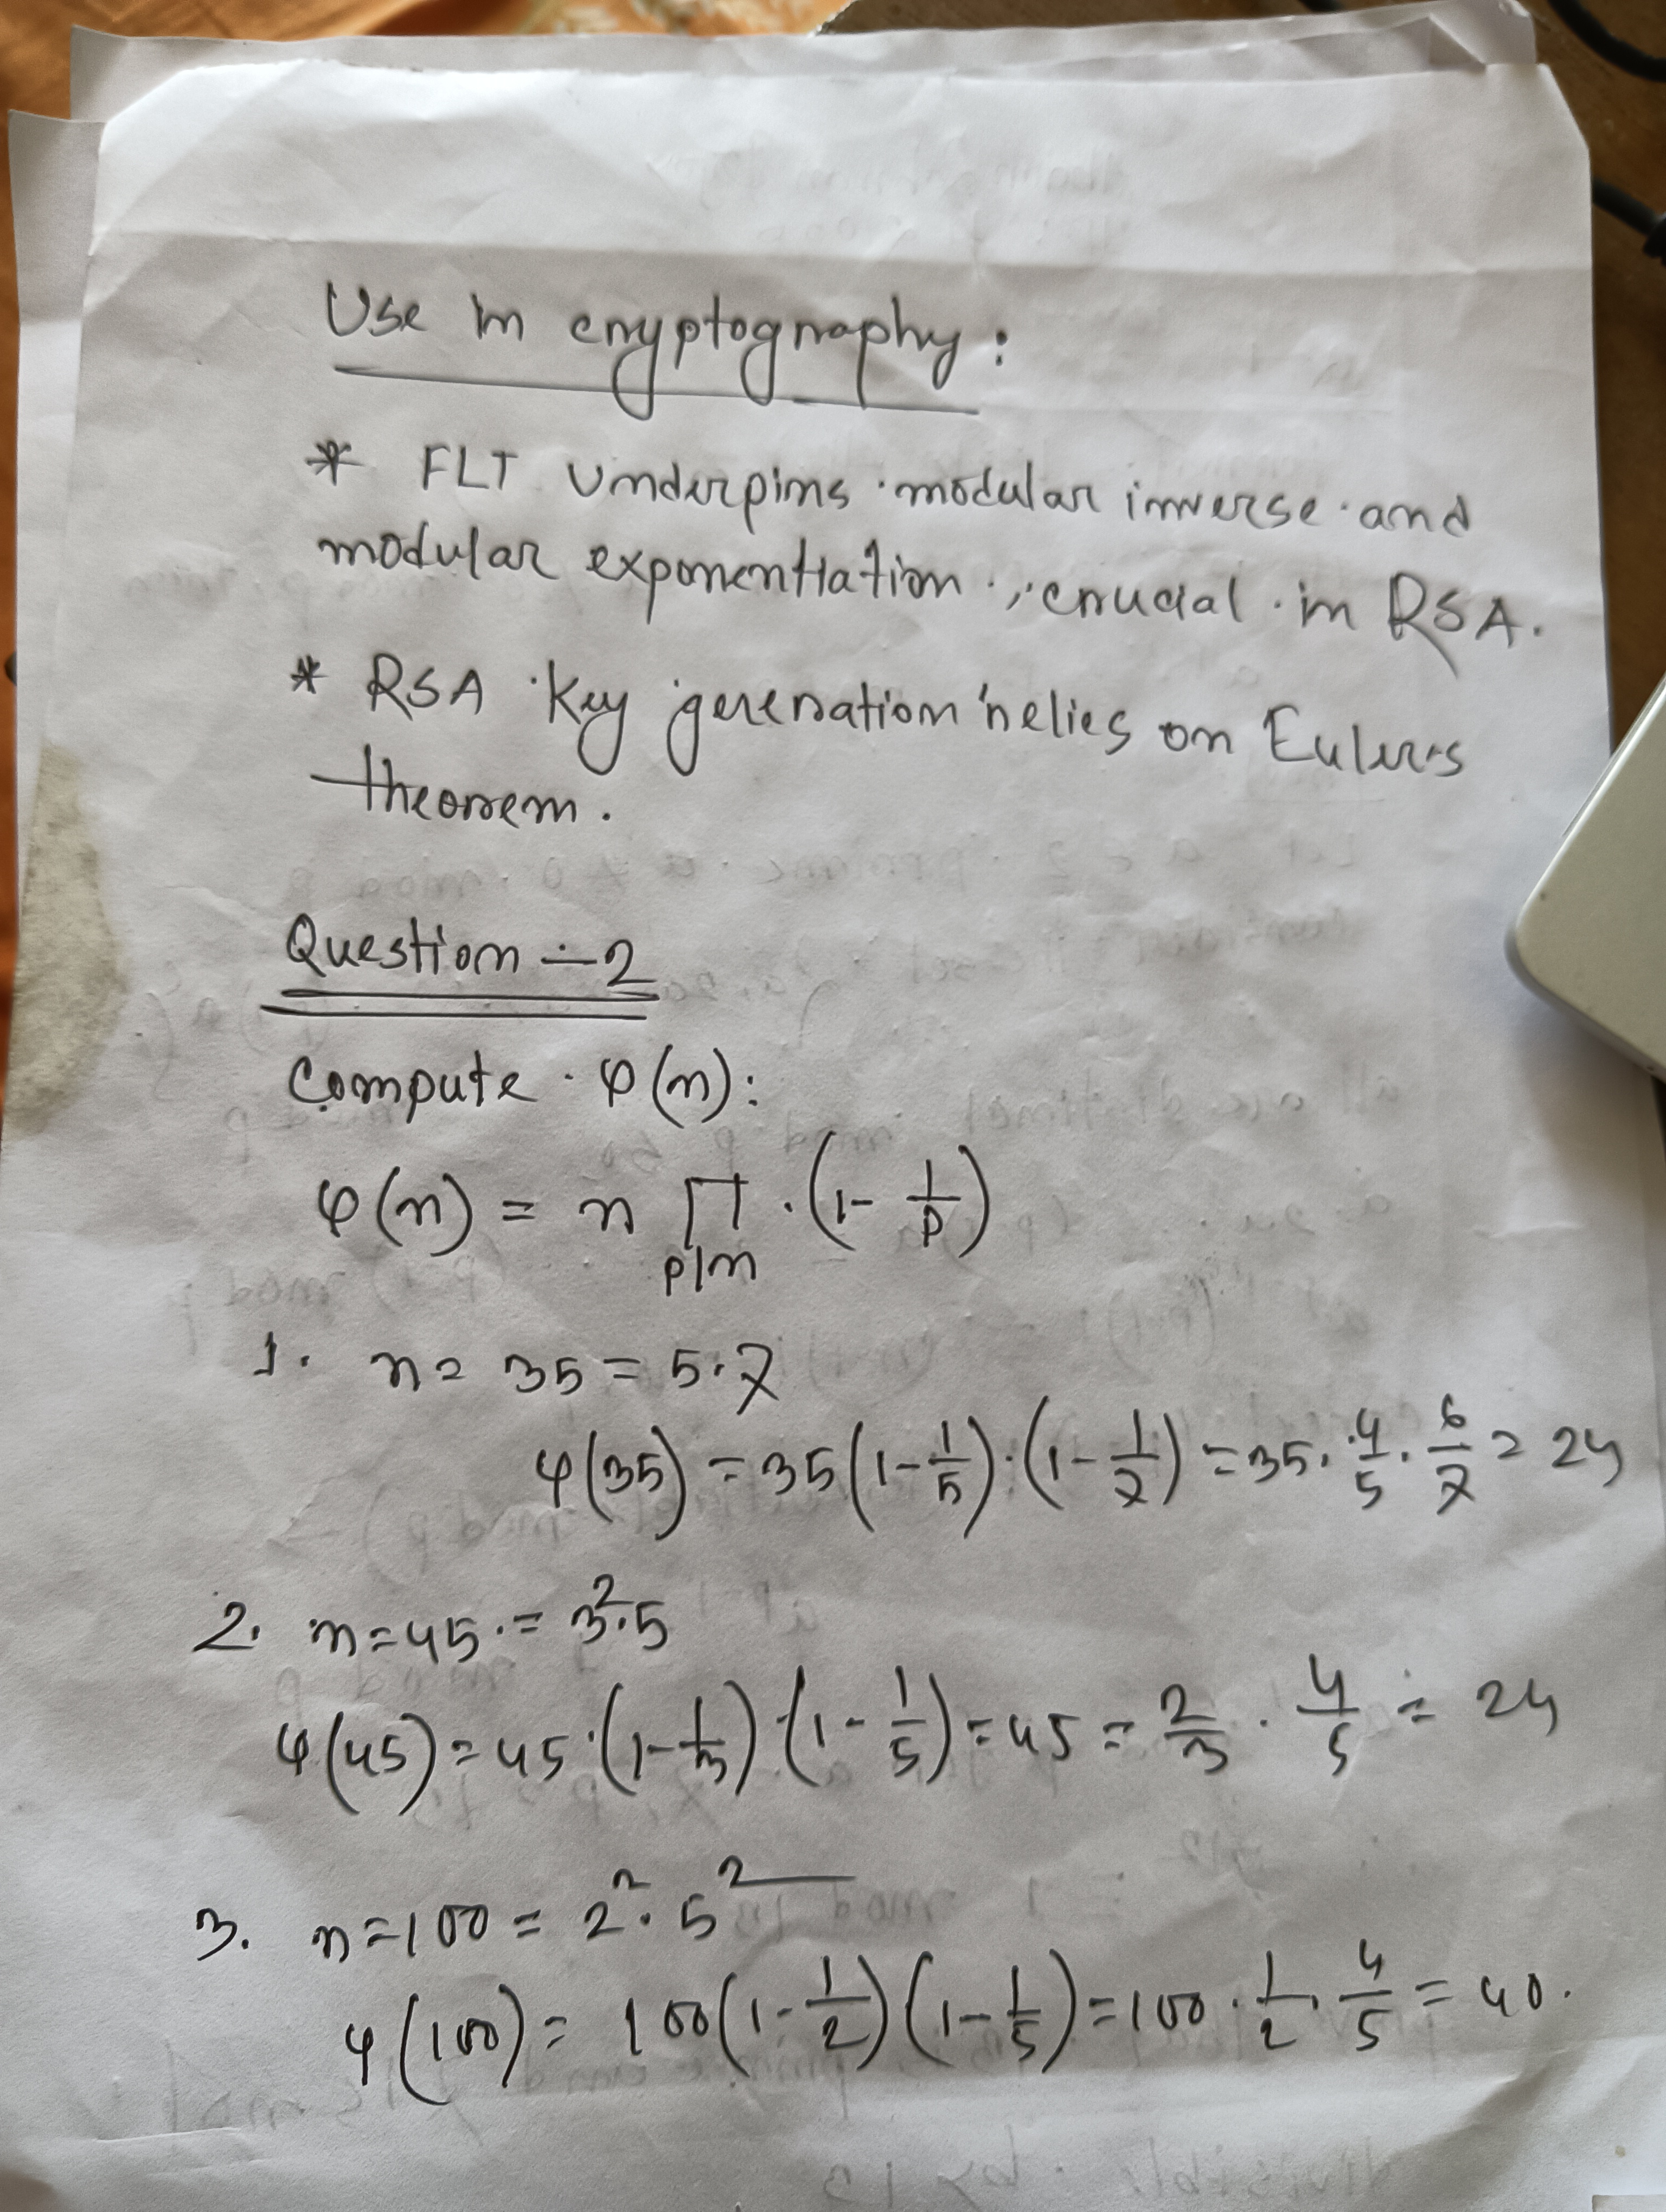 Use in cryptography:
* FLT underpins modular inverse and
modular exponentiation, crucial in RSA.
* RSA key generation relies on Euler's
theorem.
Question-2
Compute φ(n):
φ(n) = n ∏ p|n (1 - 1/p)
1. n = 35 = 5·7
φ(35) = 35(1-1/5)·(1-1/7) = 35·4/5·6/7 = 24
2. n=45 = 3²·5
φ(45) = 45·(1-1/3)(1-1/5) = 45 = 2/3 · 4/5 = 24
3. n=100 = 2²·5²
φ(100) = 100(1-1/2)(1-1/5) = 100·1/2·4/5 = 40.